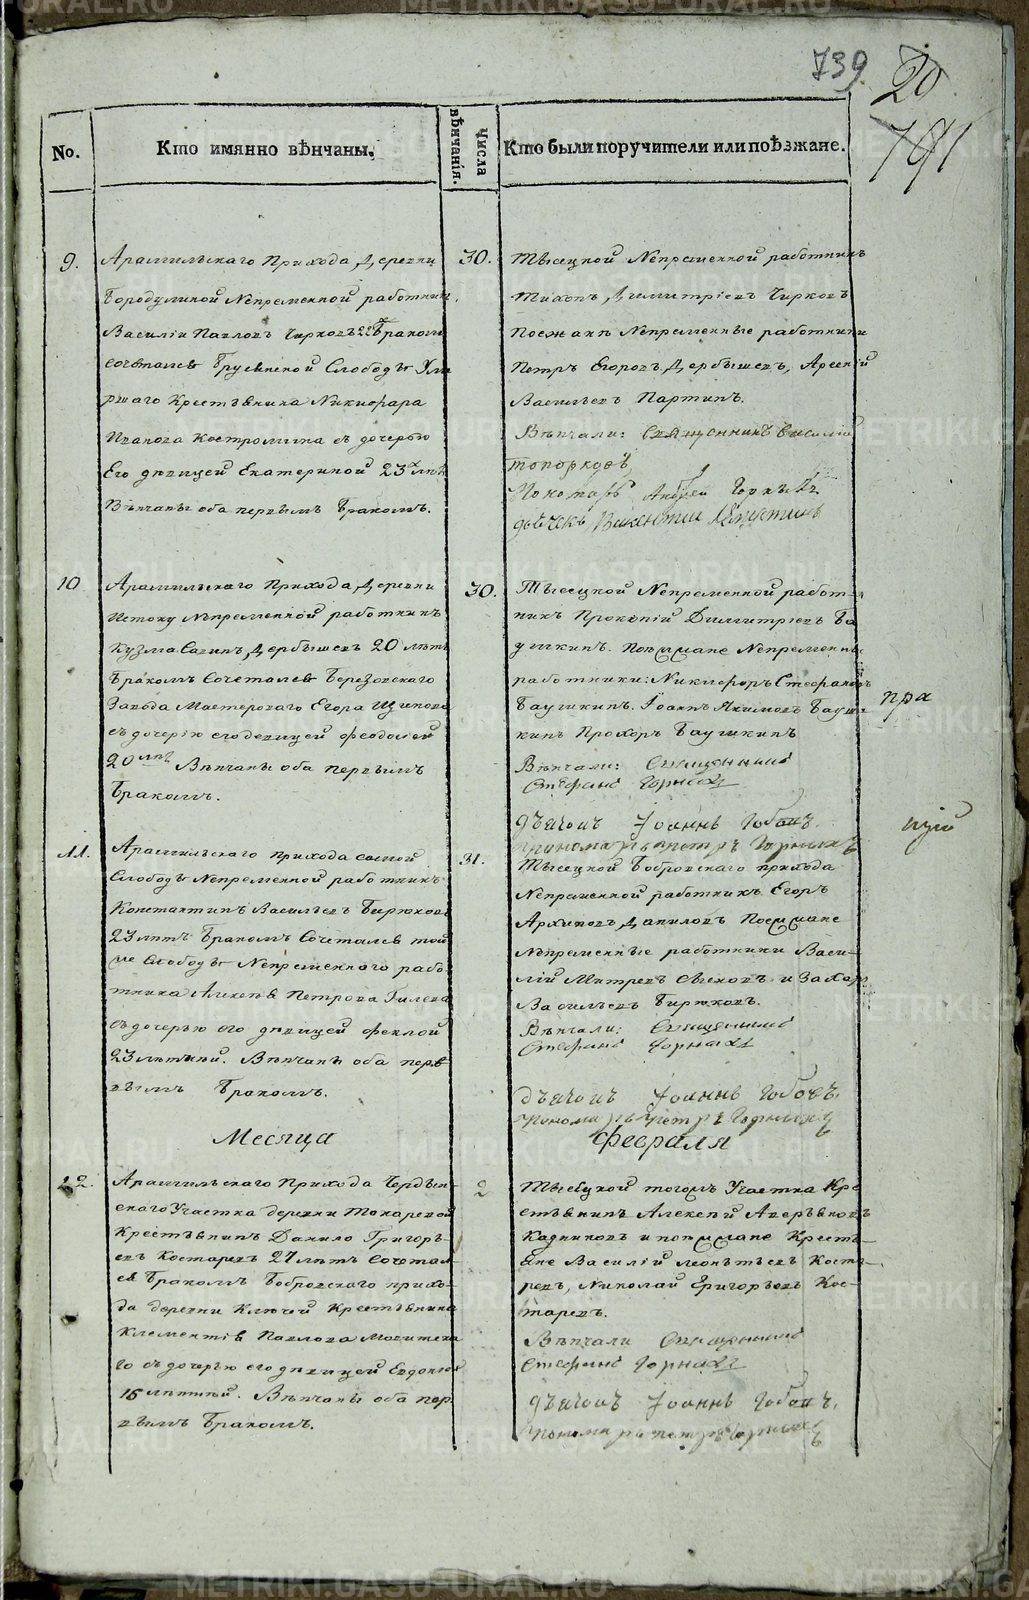 739
20
791
No.
Кто имянно вѣнчаны.
Числа вѣнчанія.
Кто были поручители или поѣзжане.
9.
Арамильскаго Прихода Деревни
Бородулиной Непременной работникъ
Василій Павловъ Чирковъ 22 Бракомъ
сочетался Брусянской Слободы Уме
ршаго Крестьянина Никифара
Иванова Костромина съ дочерью
Его дѣвицей Екатериной 23 лѣтъ
Вѣнчаны оба первымъ Бракомъ.
30.
Тысецкой Непременной работникъ
Тихонъ Димитріевъ Чирковъ
Поезжанѣ Непременные работники
Петръ Егоровъ Дербышевъ, Арсеній
Васильевъ Партинъ.
Вѣнчали: Священникъ Василій
Топорковъ
Пономарь Андрей
дьячекъ Викентий
10
Арамильскаго Прихода Деревни
Истоку Непременной работникъ
Кузма Савинъ Дербышевъ 20 лѣтъ
Бракомъ Сочетался Березовскаго
Завода Мастероваго Егора
съ дочерію его девицей Феодосіей
20 лѣт Вѣнчаны оба первымъ
Бракомъ.
30.
Тысецкой Непременной работ-
никъ Прокопій Димитріевъ Ба
ушкинъ. Поезжане Непременные
работники: Никифоръ Стефановъ
Баушкинъ. Іоанъ Якимовъ Бауш
кинъ Прохоръ Баушкинъ
Вѣнчали: Священникъ
Стефанъ Горныхъ
дьячокъ Іоаннъ
Пономарь Петръ Горныхъ
пра
11.
Арамильскаго прихода самой
Слободы Непременной работникъ
Константинъ Васильевъ Бирюковъ
23 лѣтъ Бракомъ Сочетался той
же Слободы Непременного рабо
тника Алексѣя Петрова Гилева
съ дочерью его дѣвицей Феклой
23 лѣтней. Вѣнчаны оба пер
вымъ Бракомъ.
31.
Тысецкой Бобровскаго прихода
Непременной работникъ Егоръ
Архиповъ Даниловъ Поезжане
непременные работники Васи-
лій Митревъ и Захаръ
Васильевъ Бирюковъ.
Вѣнчали: Священникъ
Стефанъ Горныхъ
дьячокъ Іоаннъ
пономарь Петръ Горныхъ
Месяца Февраля
12.
Арамильскаго Прихода
скаго Участка деревни Токаревой
Крестьянинъ Данило Григорь-
евъ Костаревъ 27 лѣтъ Сочетал-
ся Бракомъ Бобровскаго прихо-
да деревни Ключей Крестьянина
Клементія Павлова
го съ дочерью его дѣвицей Евдокией
лѣтней. Вѣнчаны оба пер
вымъ Бракомъ.
2
Тысецкой тогожъ Участка Кре
стьянинъ Алексѣй Аверьяновъ
Кадниковъ и поезжане Кресть-
яне Василій Коста-
ревъ, Николай Григорьевъ Кос-
таревъ.
Вѣнчали Священникъ
Стефанъ Горныхъ
дьячокъ Іоаннъ
Пономарь Петръ Горныхъ